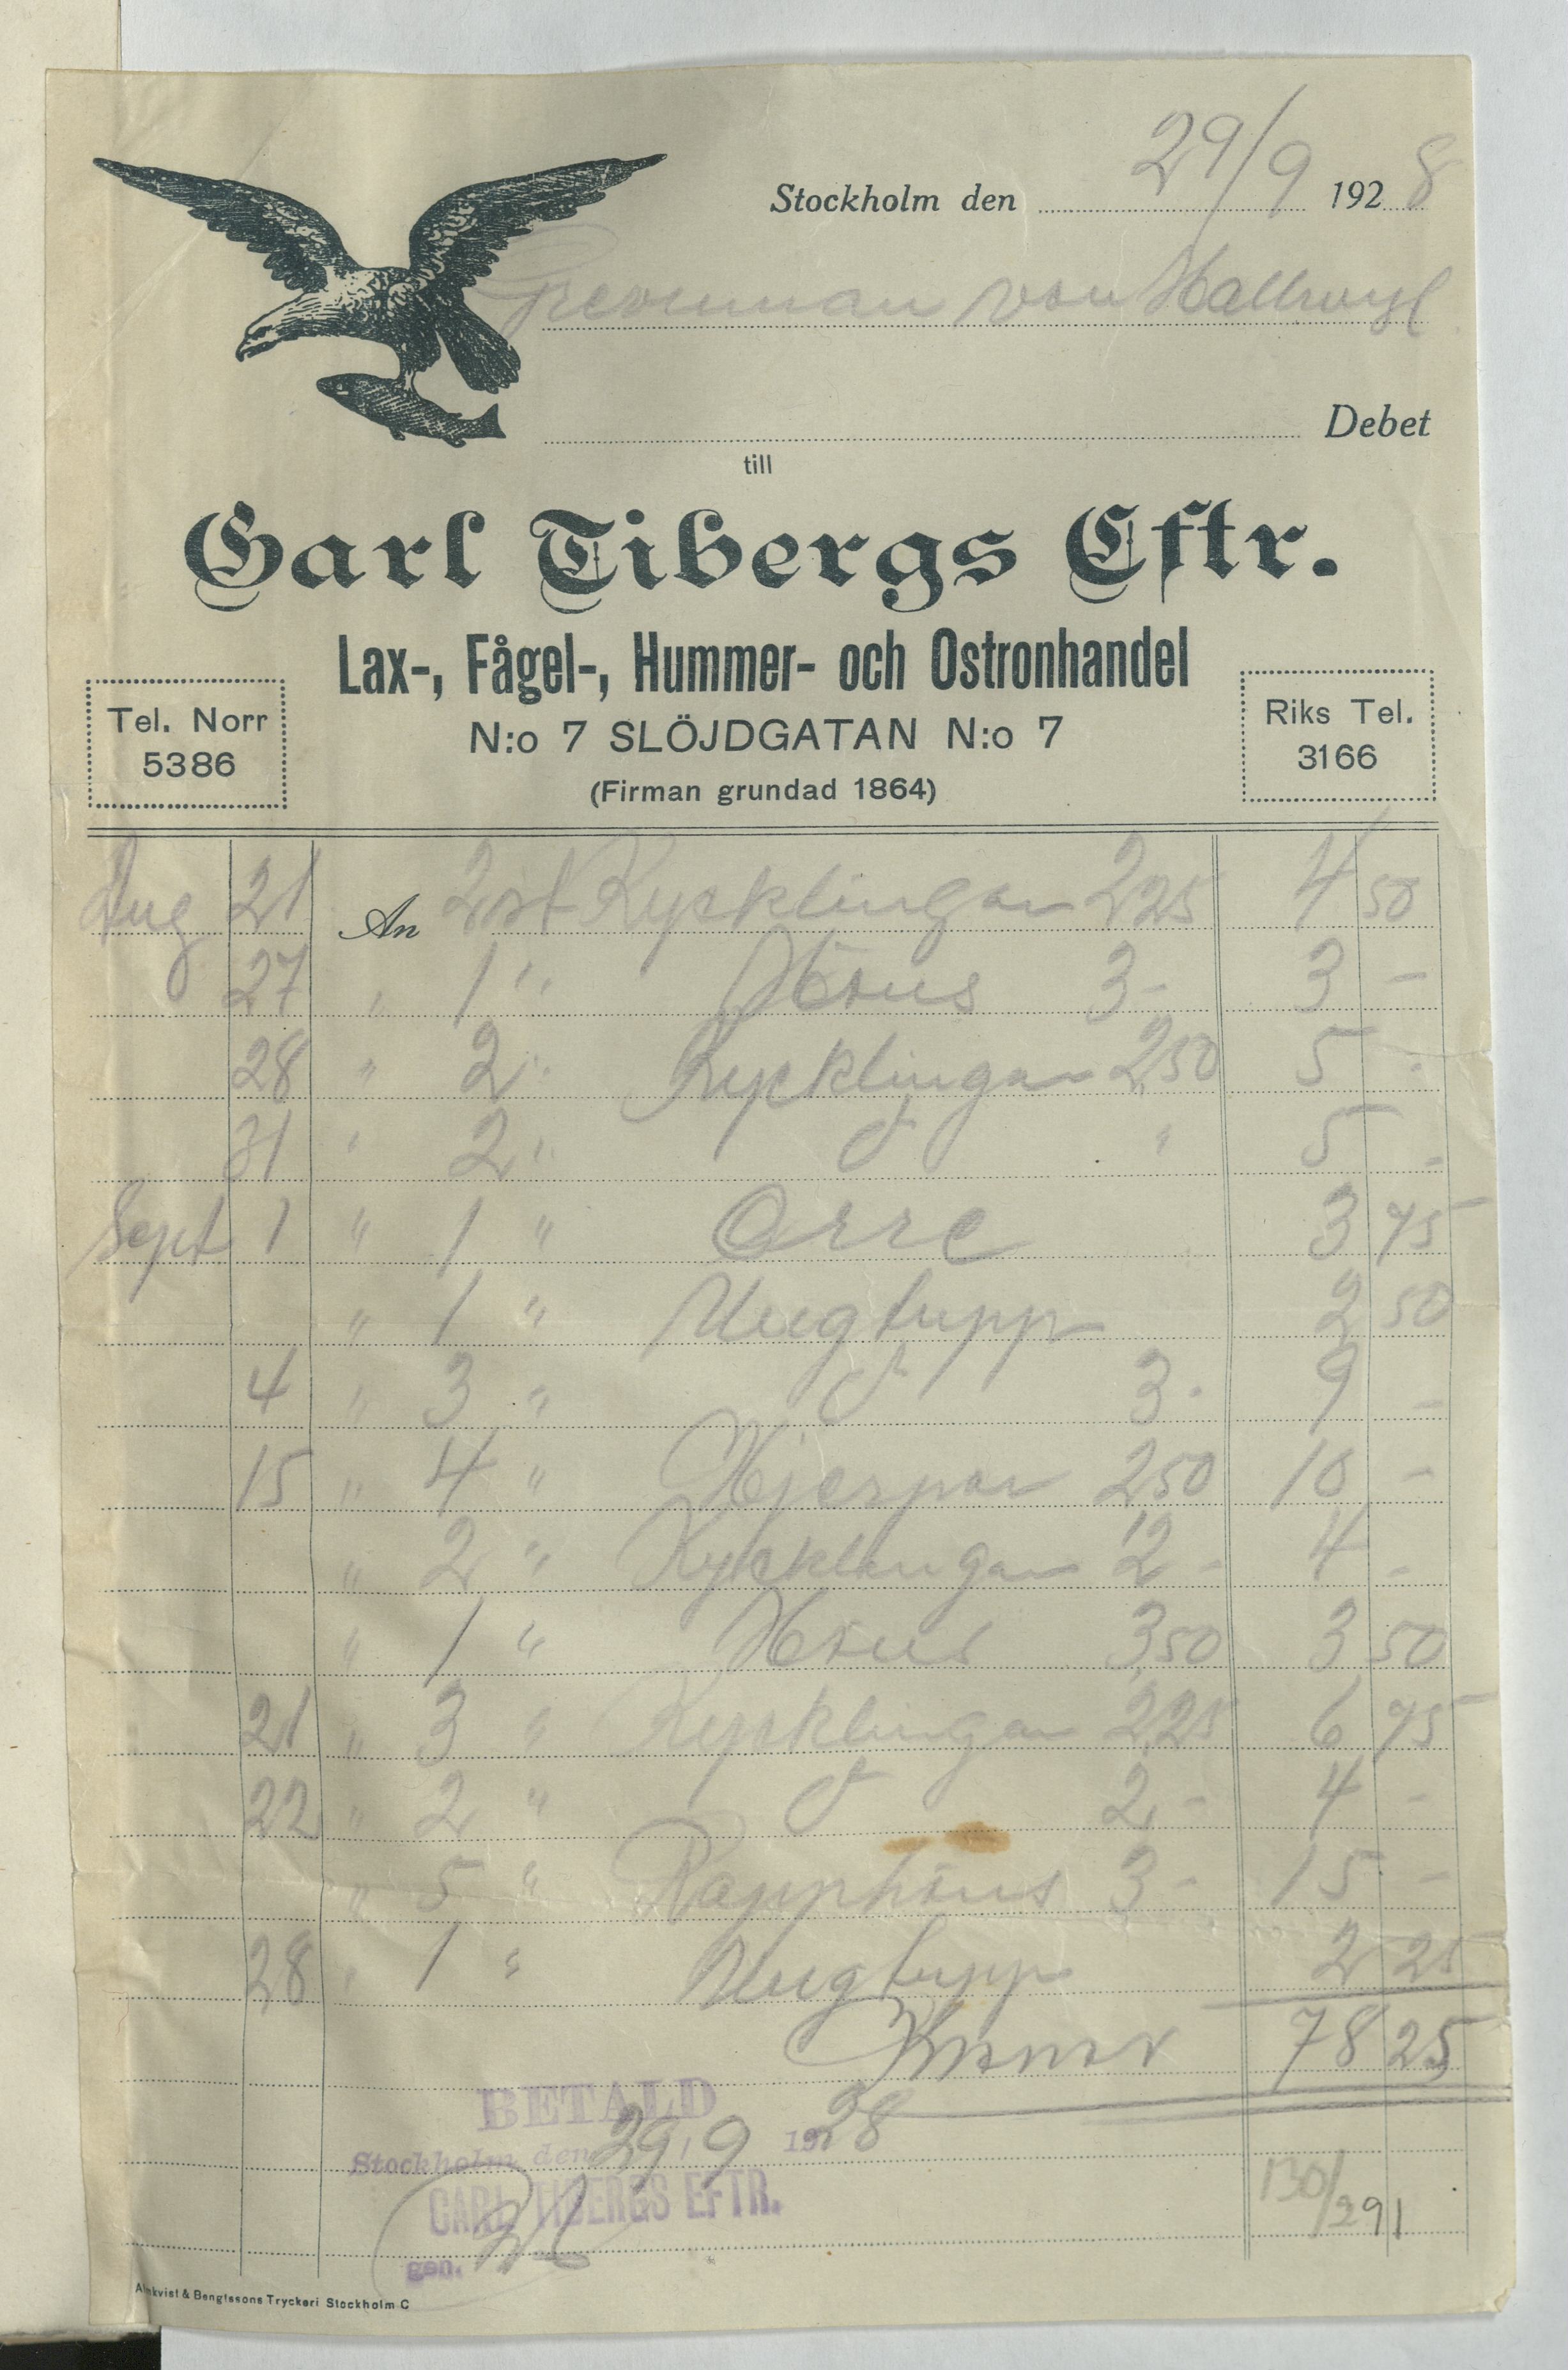 Stockholm den 29/9 1928
Grevinnan von Hallwyl
Debet
till
Carl Tibergs Eftr.
Lax-, Fågel-, Hummer- och Ostronhandel
Tel. Norr
5386
N:o 7 SLÖJDGATAN N:o 7
(Firman grundad 1864)
Riks Tel.
3166
Aug 21 An 2 st Kycklingar 2 25 4 50
27 " 1 " Höns 3 - 3 -
28 " 2 " Kycklingar 2,50 5 -
31 " 2 " d " 5 -
Sept 1 " 1 " Orre 3 75
" 1 " Ungtupp 2 50
4 " 3 " d 3 - 9 -
15 " 4 " Hjerpar 2 50 10 -
" 2 " Kycklingar 2 - 4 -
" 1 " Höns 3,50 3 50
21 " 3 " Kycklingar 2,25 6 75
22 " 2 " d 2 - 4 -
" 5 " Rapphöns 3 - 15 -
28 " 1 " Ungtupp 2 25
Kronor 78 25
BETALD
Stockholm den 29/9 1928
CARL TIBERGS EFTR.
gen.
130/291
Almkvist & Bengtssons Tryckeri Stockholm C